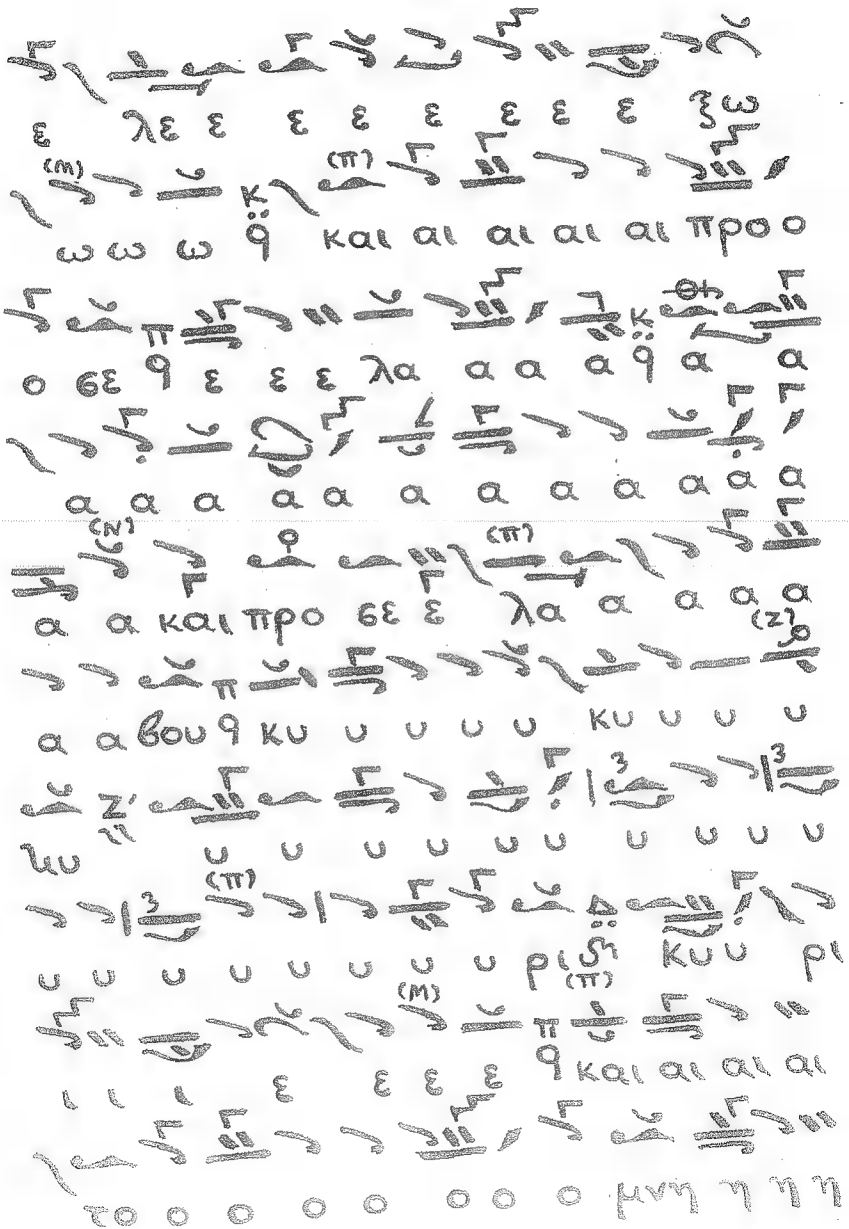 ε λε ε ε ε ε ε ε ε ξω
(Μ) (π)
ω ω ω κ q και αι αι αι αι προ ο
ο σε π q ε ε ε λα α α α κ q α α
α α α α α α α α α α α α
(Ν) (π)
α α και προ σε ε λα α α α α
(Ζ)
α α βου π q κυ υ υ υ υ κυ υ υ υ
3 3
κυ Ζ' υ υ υ υ υ υ υ υ υ υ
3 (π)
υ υ υ υ υ υ υ υ ρι Δ κυ υ υ ρι
(Μ) (π)
ι ι ι ε ε ε ε π q και αι αι αι
το ο ο ο ο ο ο ο μνη η η η